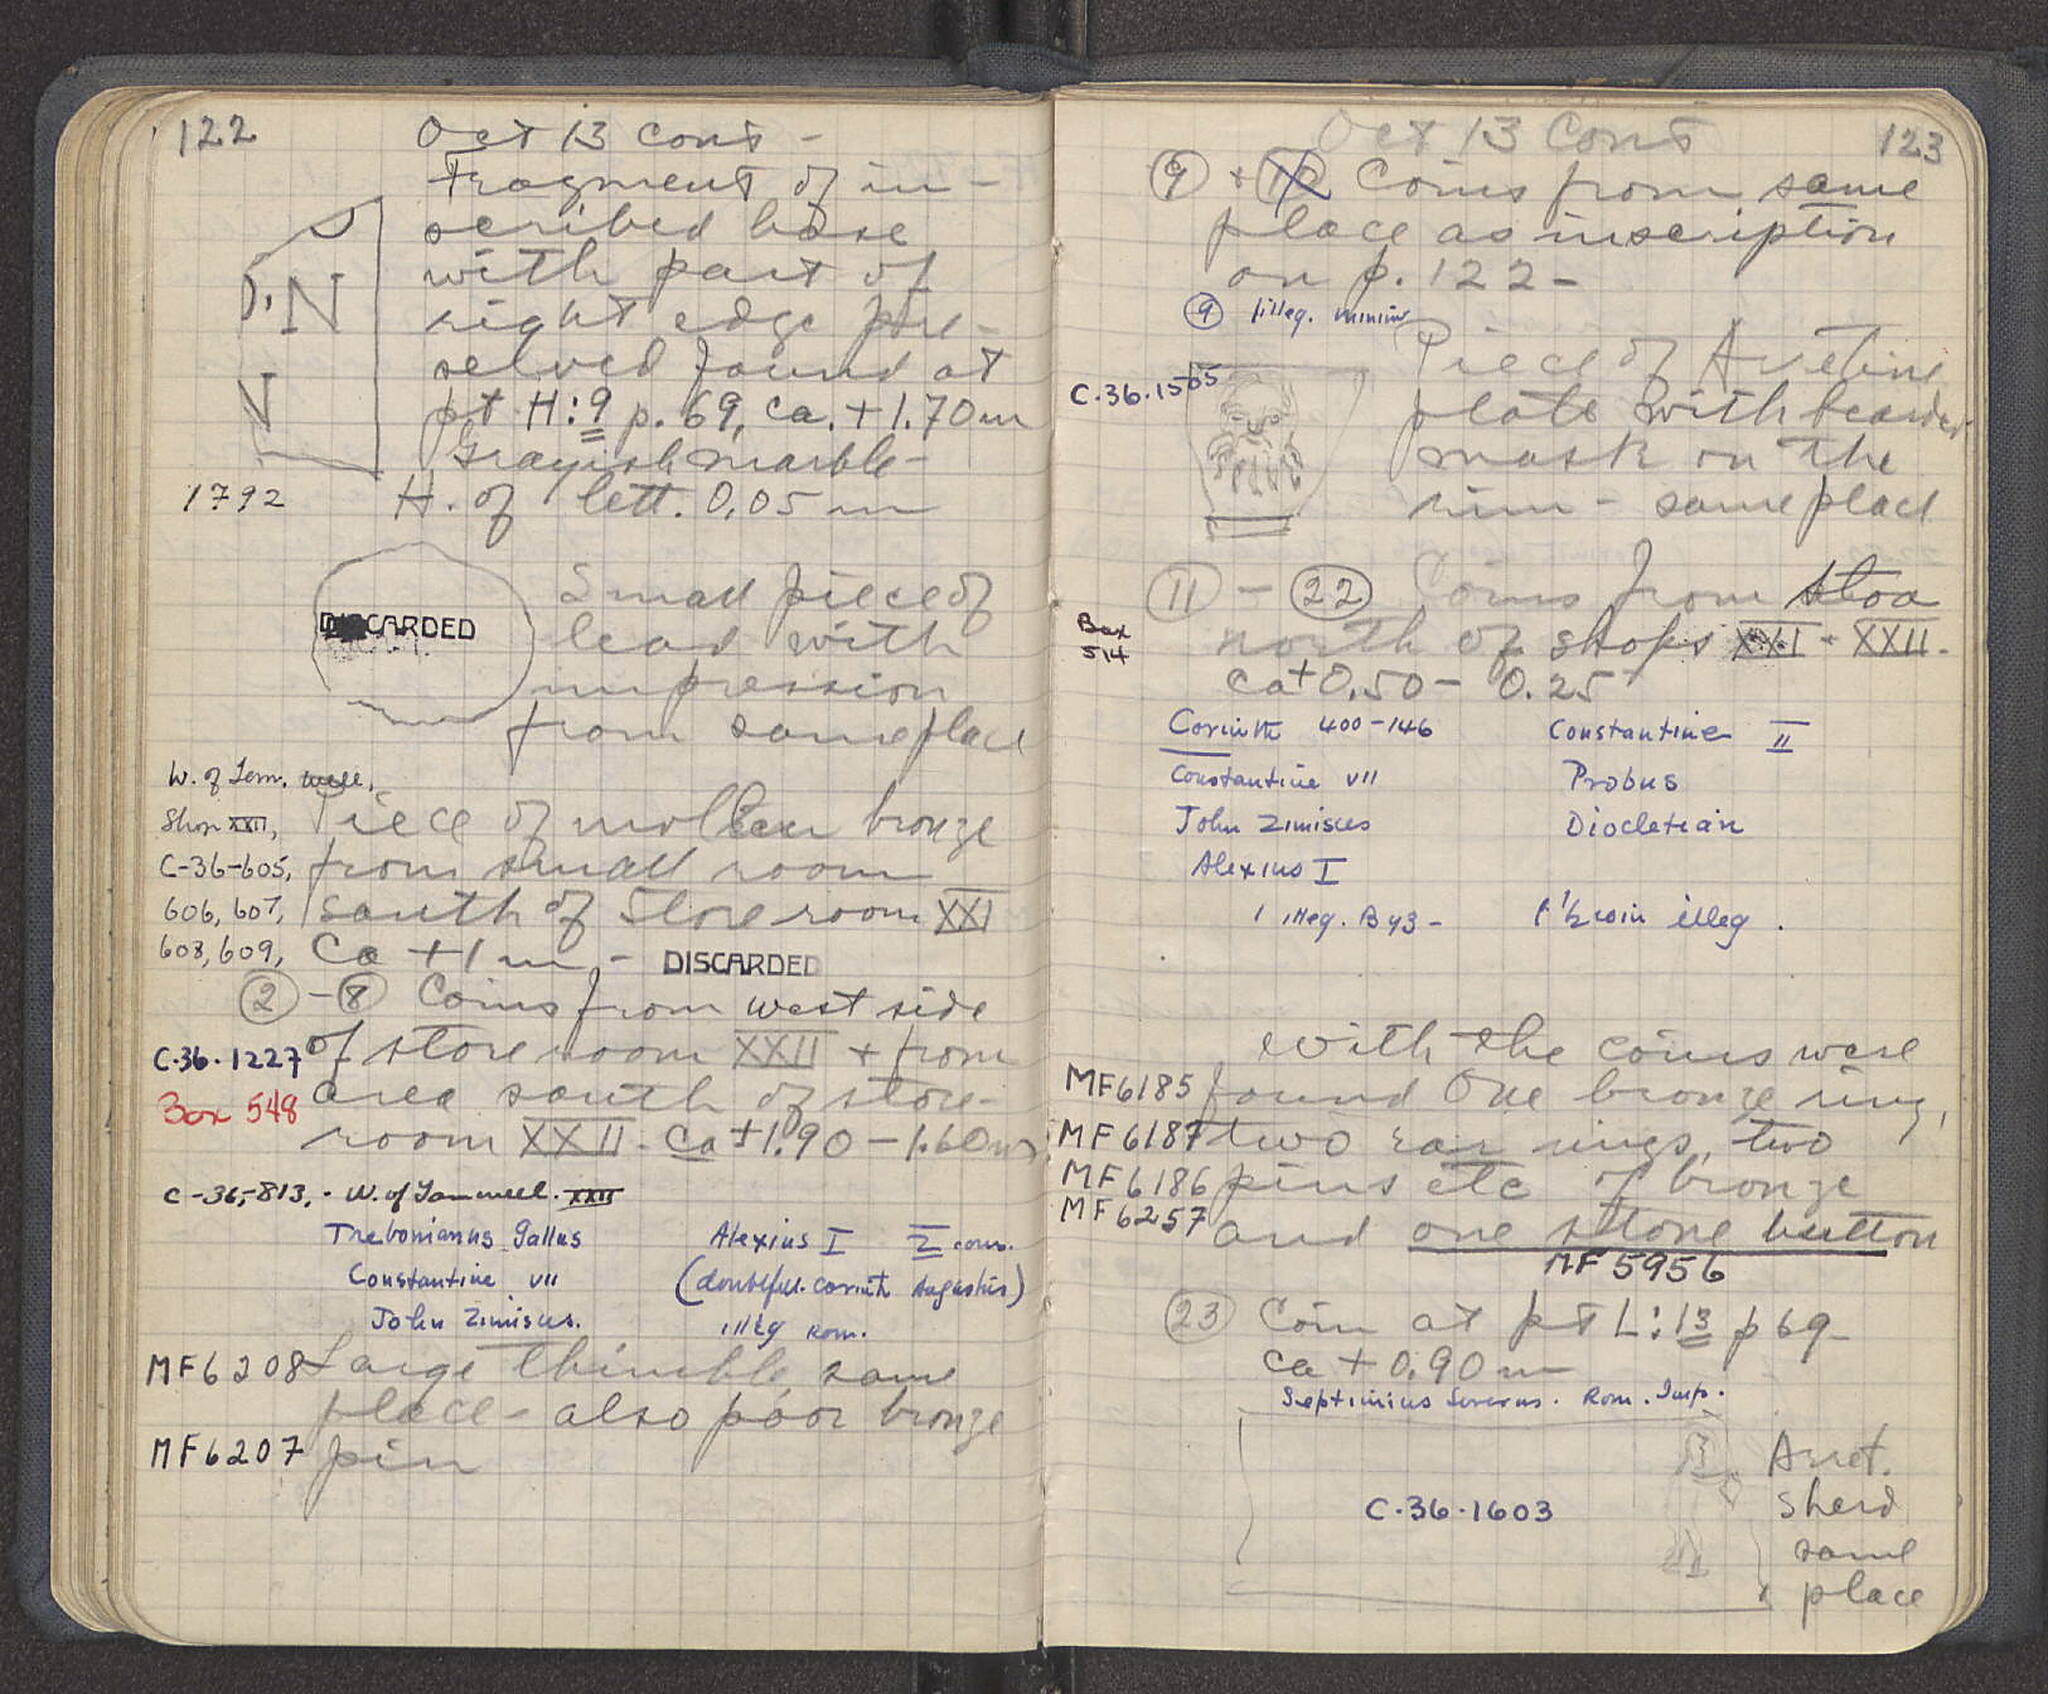 122
Oct 13 cont -
Fragment of in-
scribed base
with part of
right edge pre-
served found at
pt H:9 p. 69, ca. +1.70 m
Grayish marble-
H. of lett. 0,05 m
N
N
1792
Small piece of
lead with
impression
from same place
DISCARDED
W. of Tem. well,
Shop XXII,
C-36-605,
606, 607,
608, 609,
Piece of molten bronze
from small room
south of Store room XXI
Ca +1 m - DISCARDED
2 - 8 Coins from west side
of store room XXII + from
area south of store-
room XXII - ca +1.90 - 1.60 m
C-36-1227
Box 548
C-36-813, . W. of Tem well. XXII
Trebonianus Gallus
Constantine VII
John Zimisces.
Alexius I 2 coins.
(doubtful. Corinth Augustus)
illeg Rom.
MF6208 Large thimble, same
place - also poor bronze
MF6207 pin
Oct 13 Cont
123
9 + 10 Coins from same
place as inscription
on p. 122 -
9 1 illeg. minim
C-36-1505
Piece of Aretine
plate with bearded
mask on the
rim - same place
11 - 22 Coins from stoa
north of shops XXI - XXII -
ca + 0.50 - 0.25
Box
514
Corinth 400-146
Constantine VII
John Zimisces
Alexius I
1 illeg. Byz -
Constantine II
Probus
Diocletian
1 1/2 coin illeg.
with the coins were
MF6185 found One bronze ring,
MF6187 two ear rings, two
MF6186 pins etc of bronze
MF6257 and one stone button
MF 5956
23 Coin at pt L:13 p 69-
ca + 0.90 m
Septimius Severus. Rom. Imp.
C-36-1603
Arret.
sherd
same
place